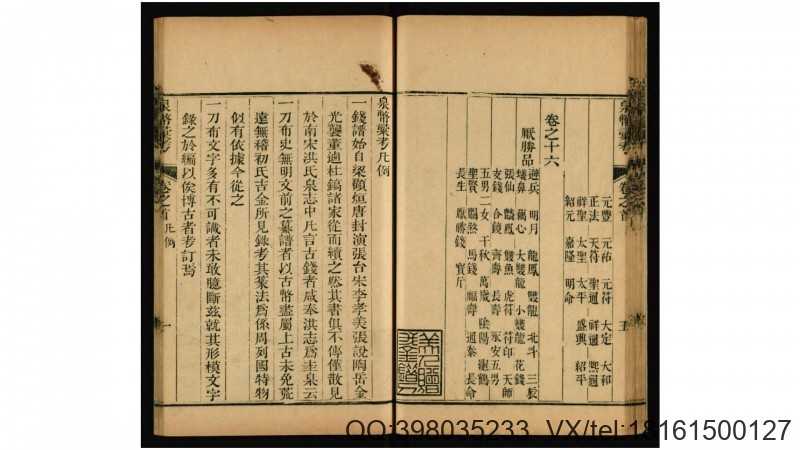 元豐 元祐 元符 大定 大和
正法 天符 聖通 祥通 熙通
祥聖 太聖 太平 盛興 紹平
紹元 嘉隆 明命
卷之十六
厭勝品
遊兵 明月 龍鳳 雙龍 北斗 三辰
蟻鼻 藕心 大雙龍 小雙龍 花錢
張仙 麟鳳 雙魚 虎符 符印 天師
支錢 合錢 齊壽 長壽 永安五男
五男二女 千秋 萬歲 陰陽 龜鶴
聖賢 馬錢 福壽 通泰 長命
長生 厭勝錢 寶斤
五
泉幣彙考
卷之首
泉幣彙考凡例
一錢譜始自梁顧烜唐封演張台宋李孝美張說陶岳金
光襲董逌杜鎬諸家從而續之然其書俱不傳僅散見
於南宋洪氏泉志中凡言古錢者咸奉洪志為圭臬云
一刀布史無明文前之纂譜者以古幣盡屬上古未免荒
遠無稽初氏吉金所見錄考其篆法為係周列國特物
似有依據今從之
一刀布文字多有不可識者未敢臆斷茲就其形模文字
錄之於編以俟博古者考訂焉
泉幣彙考
卷之首 凡例
一
QQ:398035233 VX/tel:18161500127